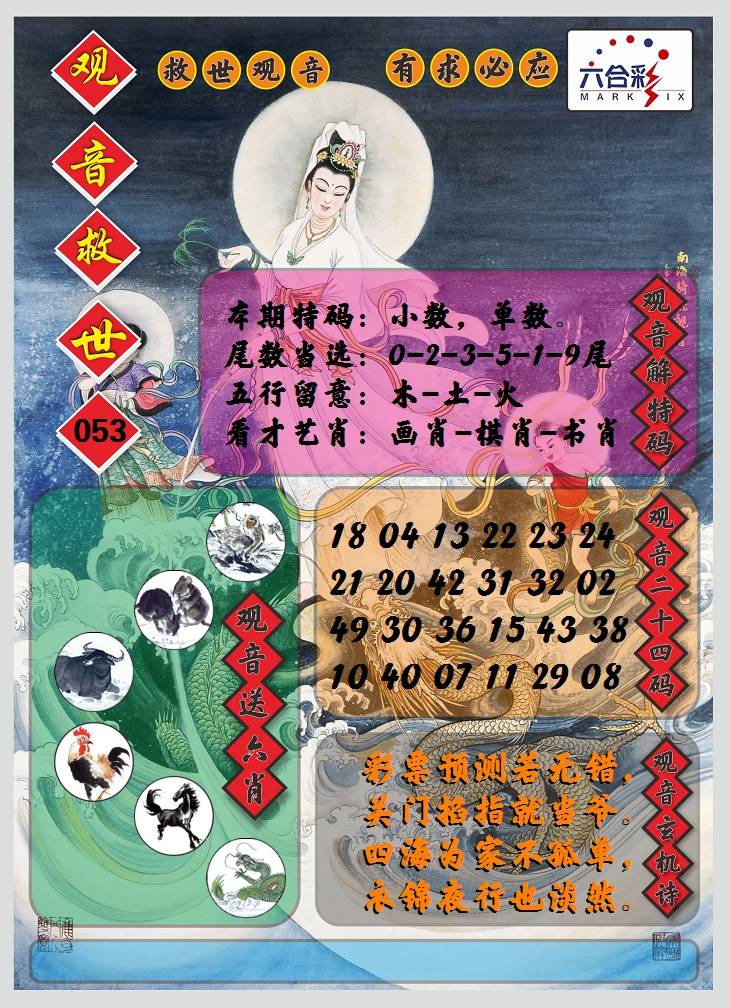 观音救世
053
救世观音 有求必应
六合彩
MARK SIX
本期特码：小数，单数。
尾数当选：0-2-3-5-1-9尾
五行留意：木-土-火
看才艺肖：画肖-棋肖-书肖
观音解特码
18 04 13 22 23 24
21 20 42 31 32 02
49 30 36 15 43 38
10 40 07 11 29 08
观音二十四码
观音送六肖
彩票预测若无错，
关门掐指就当爷。
四海为家不孤单，
衣锦夜行也淡然。
观音玄机诗